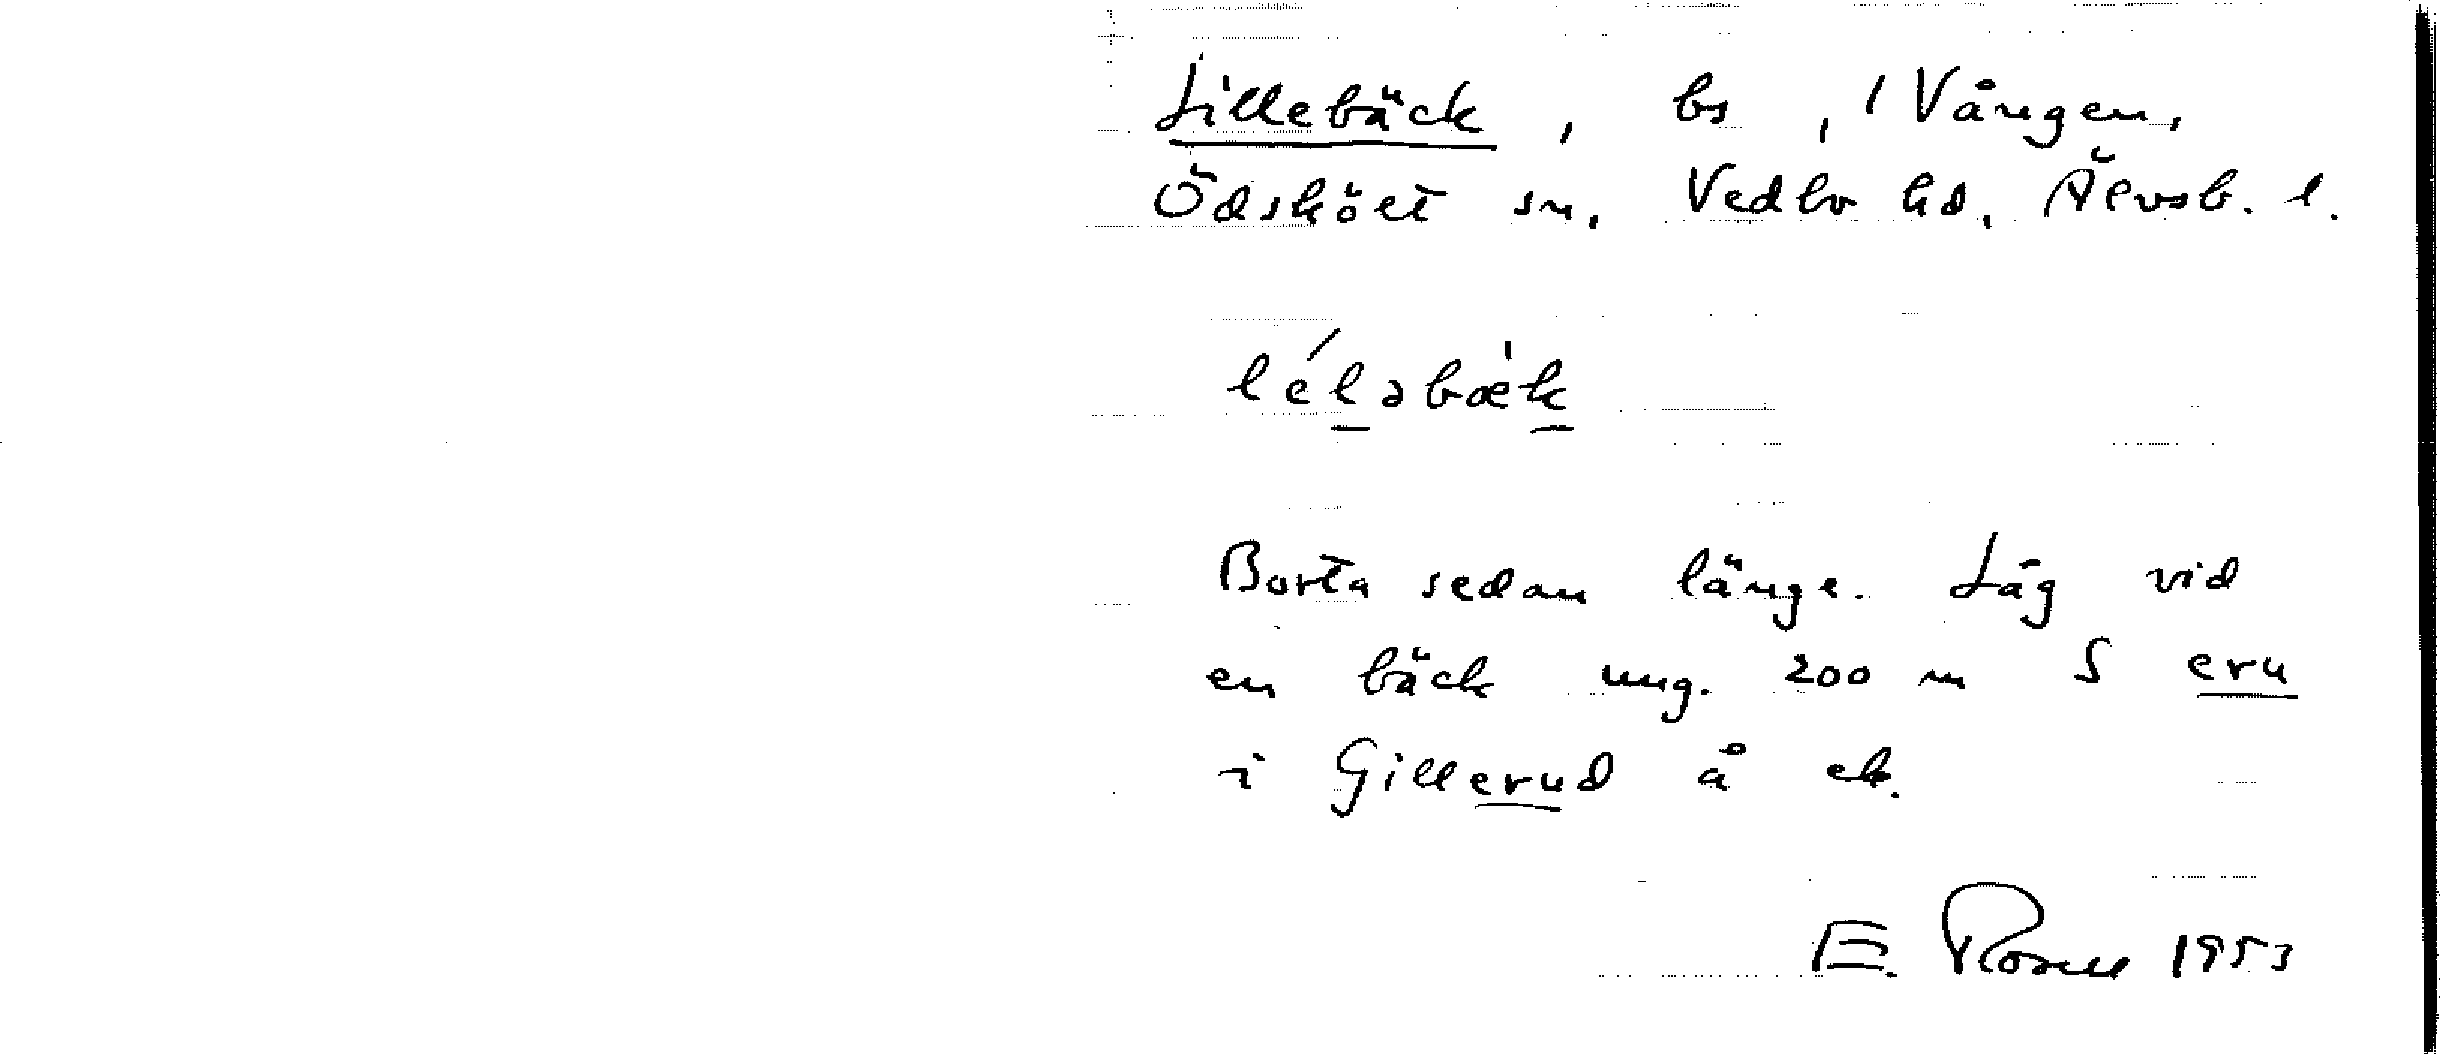 Lillebäck, bs, / Vången,
Ödskölt sn. Vedbo hd, Älvsb. l.
lélǝbæ̀k
Borta sedan länge. Låg vid
en bäck ung. 200 m S eru
i Gillerud å ek.
E. Rosell 1953